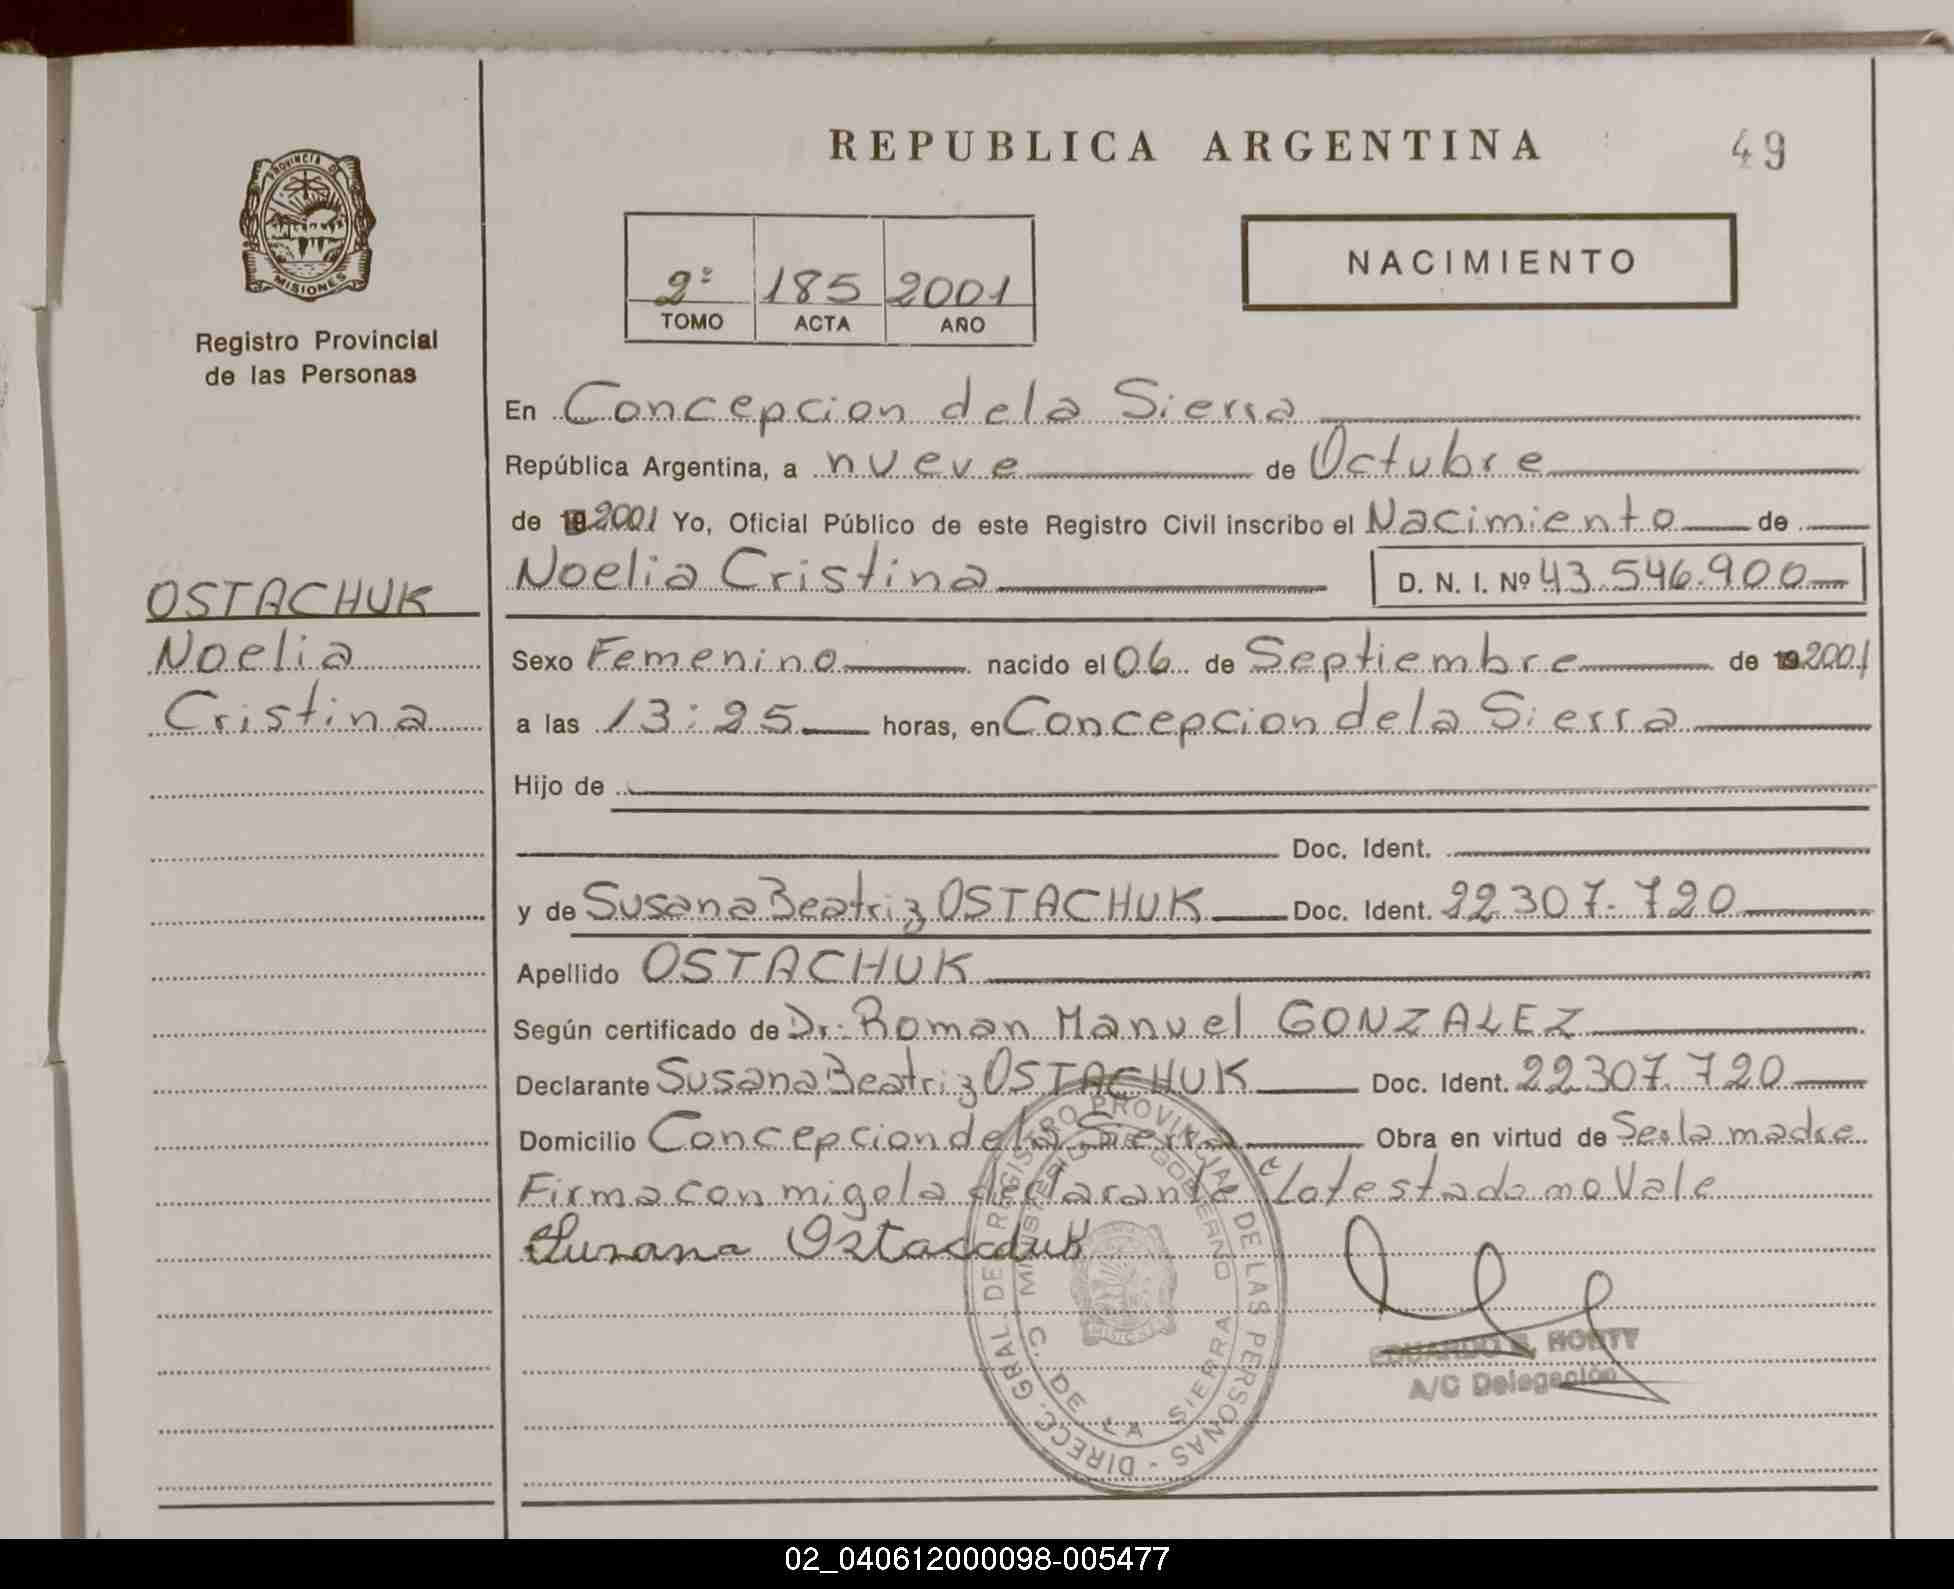 REPUBLICA ARGENTINA
49
PROVINCIA DE MISIONES
Registro Provincial
de las Personas
2º 185 2001
TOMO ACTA AÑO
NACIMIENTO
En Concepcion de la Sierra
República Argentina, a nueve de Octubre
de 19 2001 Yo, Oficial Público de este Registro Civil inscribo el Nacimiento de
Noelia Cristina D. N. I. Nº 43.546.900
OSTACHUK
Noelia
Cristina
Sexo Femenino nacido el 06 de Septiembre de 19 2001
a las 13:25 horas, en Concepcion de la Sierra
Hijo de
Doc. Ident.
y de Susana Beatriz OSTACHUK Doc. Ident. 22307.720
Apellido OSTACHUK
Según certificado de Dr: Roman Manuel GONZALEZ
Declarante Susana Beatriz OSTACHUK Doc. Ident. 22307.720
Domicilio Concepcion de la Sierra Obra en virtud de Ser la madre
Firma con migo la declarante testado no Vale
Susana Ostacduk
DIRECC. GRAL. DE REGISTRO PROVINCIAL DE LAS PERSONAS -
MINISTERIO DE GOBIERNO
C. DE LA SIERRA
MISIONES
EDUARDO
A/C Delegación
02_040612000098-005477